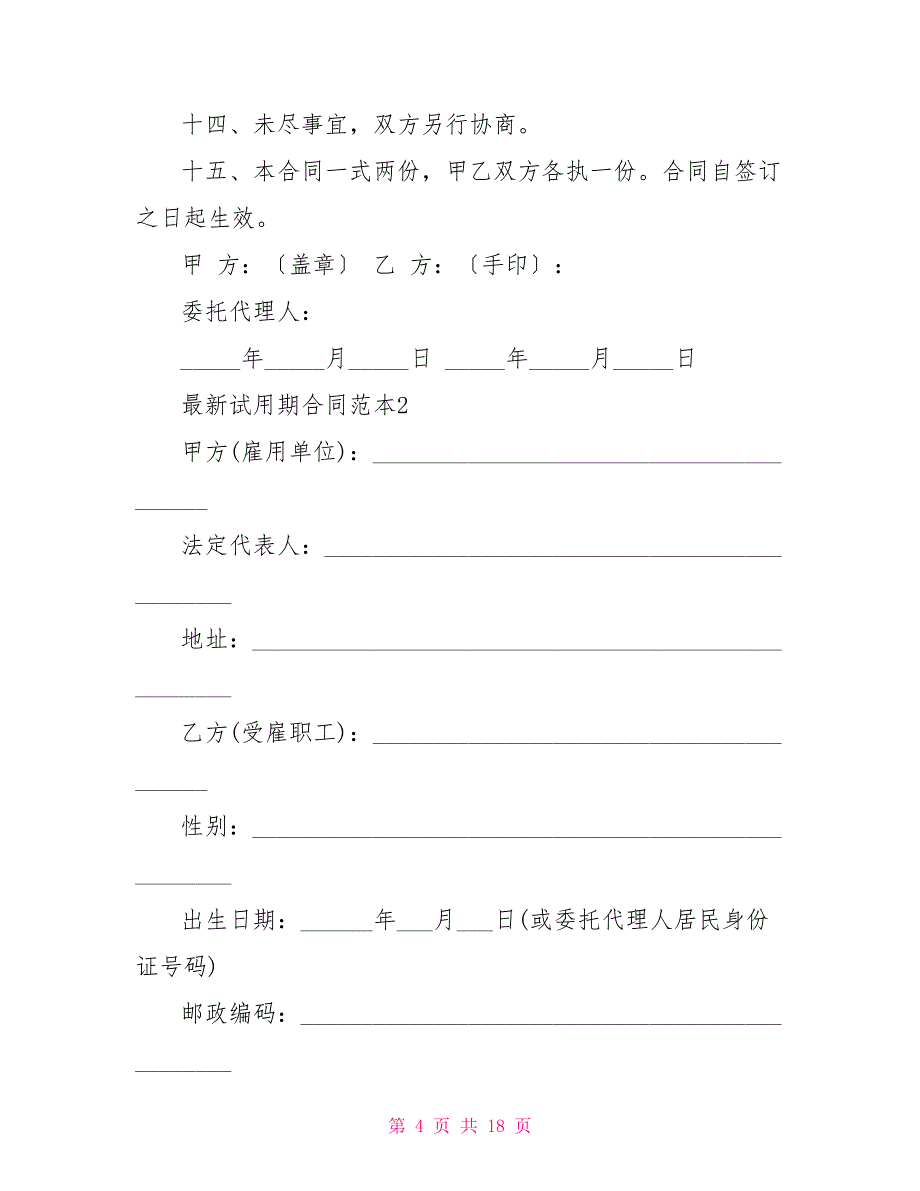 十四、未尽事宜，双方另行协商。
十五、本合同一式两份，甲乙双方各执一份。合同自签订
之日起生效。
甲 方：〔盖章〕 乙 方：〔手印〕：
委托代理人：
_____年_____月_____日 _____年_____月_____日
最新试用期合同范本2
甲方(雇用单位)：__________________________________
______
法定代表人：______________________________________
________
地址：____________________________________________
________
乙方(受雇职工)：__________________________________
______
性别：____________________________________________
________
出生日期：______年___月___日(或委托代理人居民身份
证号码)
邮政编码：________________________________________
________
第 4 页 共 18 页